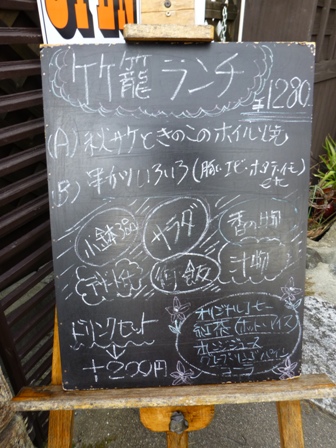 OPEN
竹籠ランチ
¥1280
(A) 秋サケときのこのホイル焼
(B) 串かついろいろ(豚・エビ・ポテト etc
小鉢3品 サラダ 香の物
デザート ご飯 汁物
ドリンクセット
↓
+200円
オリジナルコーヒー
紅茶 ホット・アイス
オレンジジュース
グレープフルーツジュース
コーラ